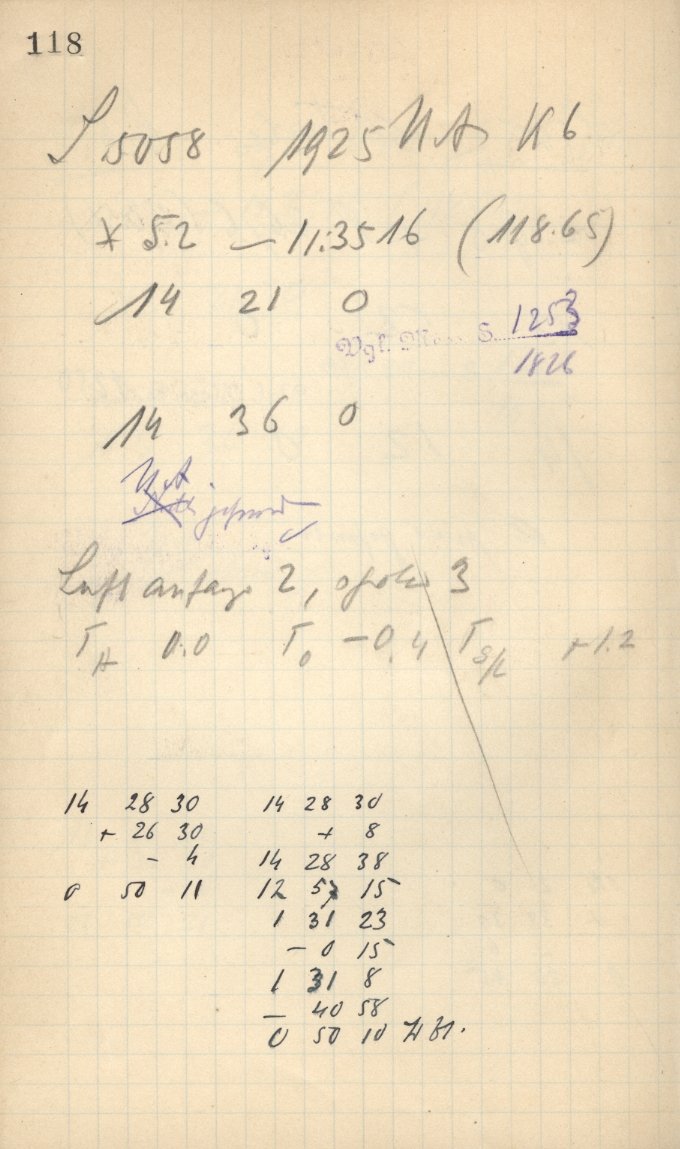 118
S 5058 1925 NA K6
* 5.2 – 11:3516 (118.65)
14 21 0
Vgl. S. 1253
1826
14 36 0
NA
Luft anfangs 2, später 3
T_A 0.0 T_0 –0.4 T_S/L +1.2
14 28 30 14 28 30
+ 26 30 + 8
– 4 14 28 38
0 50 11 12 57 15
1 31 23
– 0 15
1 31 8
– 40 58
0 50 10